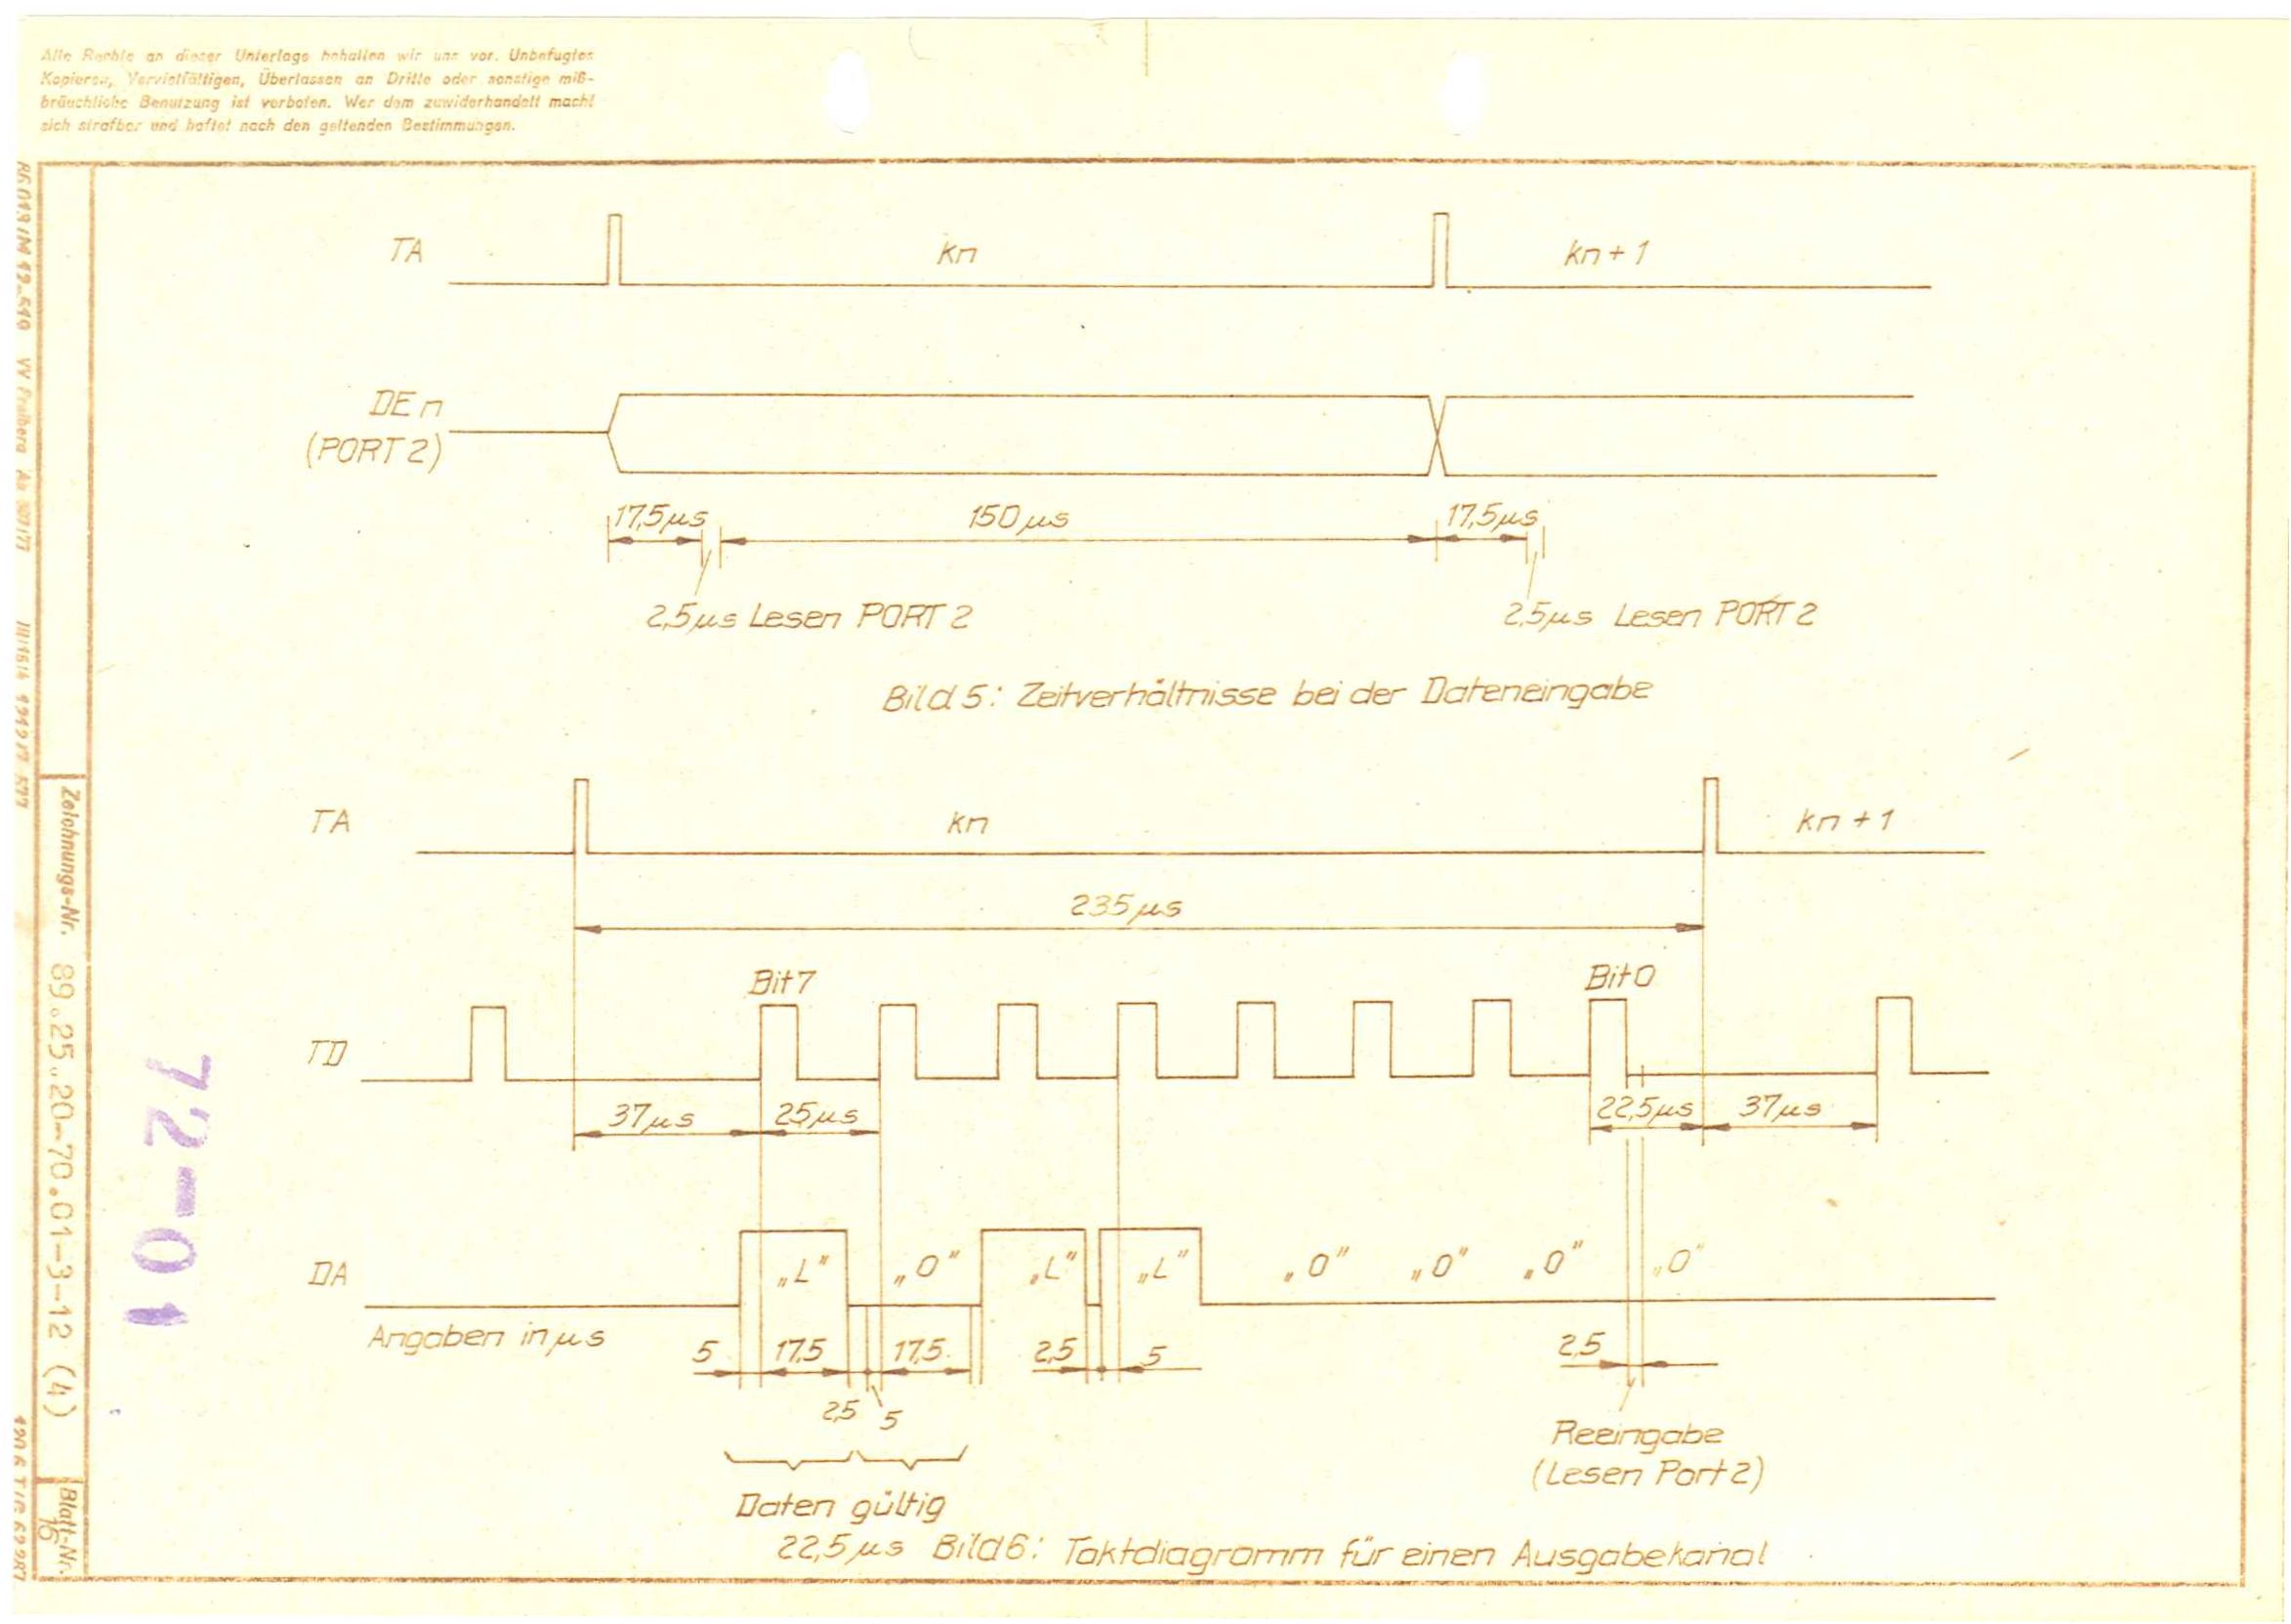 Alle Rechte an dieser Unterlage behalten wir uns vor. Unbefugtes
Kopieren, Vervielfältigen, Überlassen an Dritte oder sonstige miß-
bräuchliche Benutzung ist verboten. Wer dem zuwiderhandelt macht
sich strafbar und haftet nach den geltenden Bestimmungen.
TA kn kn + 1
DE n
(PORT 2)
17,5µs 150µs 17,5µs
2,5µs Lesen PORT 2 2,5µs Lesen PORT 2
Bild 5: Zeitverhältnisse bei der Dateneingabe
TA kn kn + 1
235µs
Bit 7 Bit 0
TD
37µs 25µs 22,5µs 37µs
DA „L" „0" „L" „L" „0" „0" „0" „0"
Angaben in µs
5 17,5 17,5 2,5 5 2,5
2,5 5
Reeingabe
(Lesen Port 2)
Daten gültig
22,5µs Bild 6: Taktdiagramm für einen Ausgabekanal
Zeichnungs-Nr. 89.25.20-70.01-3-12 (4)
Blatt-Nr.
16
72-01